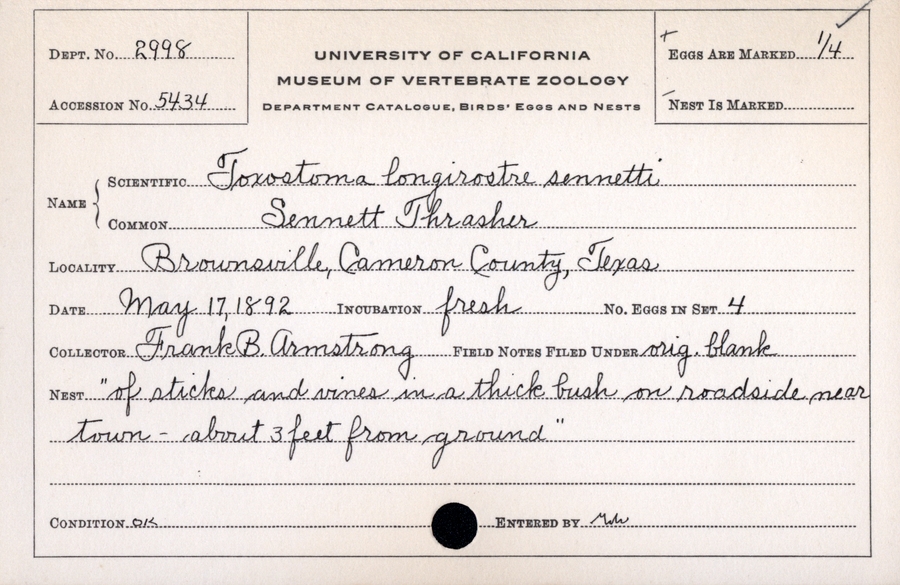 Dept. No. 2998
Accession No. 5434
UNIVERSITY OF CALIFORNIA
MUSEUM OF VERTEBRATE ZOOLOGY
Department Catalogue, Birds' Eggs and Nests
+ Eggs Are Marked 1/4
Nest Is Marked
Name
Scientific Toxostoma longirostre sennetti
Common Sennett Thrasher
Locality Brownsville, Cameron County, Texas
Date May 17, 1892 Incubation fresh No. Eggs in Set 4
Collector Frank B. Armstrong Field Notes Filed Under orig. blank
Nest "of sticks and vines in a thick bush on roadside near
town - about 3 feet from ground"
Condition OK Entered by